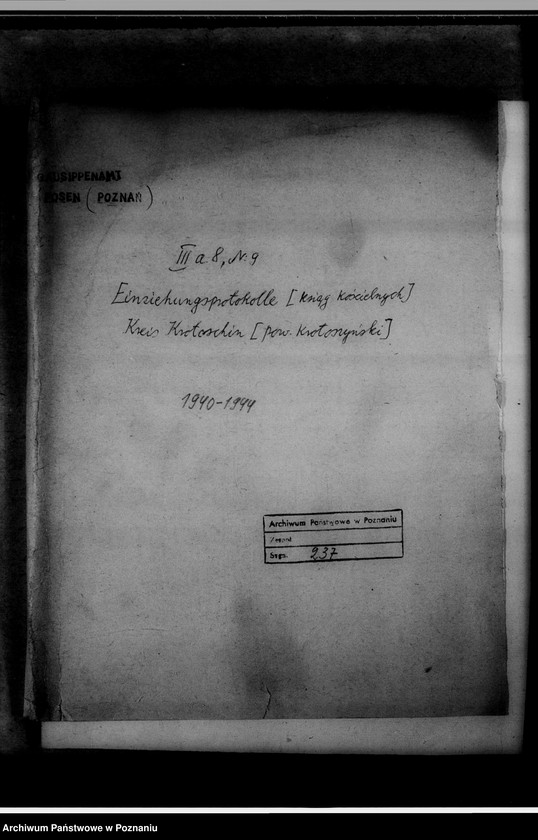 GAUSIPPENAMT
POSEN (POZNAŃ)
III a. 8, Nr. 9
Einziehungsprotokolle [ksiąg kościelnych]
Kreis Krotoschin [pow. krotoszyński]
1940-1944
Archiwum Państwowe w Poznaniu
Zespół
Sygn. 237
Archiwum Państwowe w Poznaniu